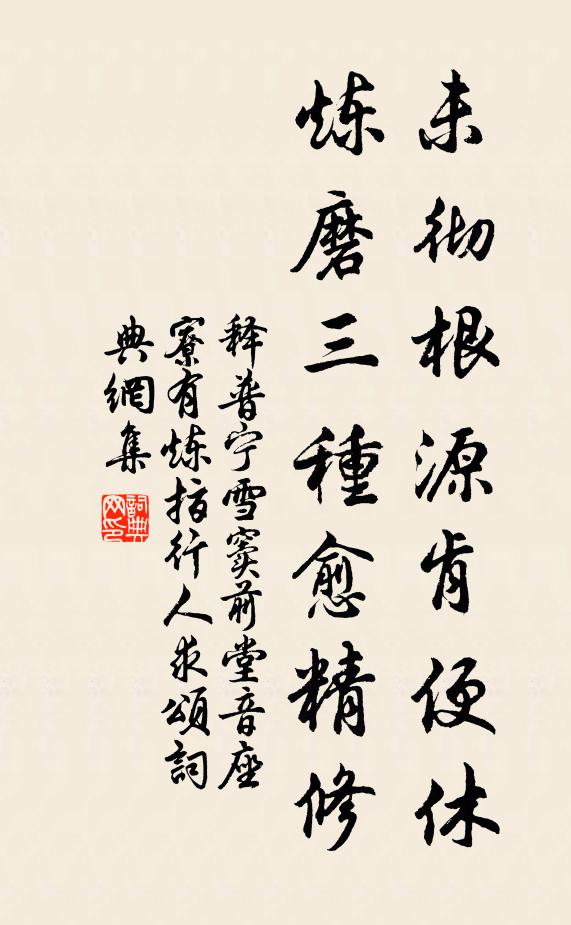 未彻根源肯便休
炼磨三種愈精修
释普宁雪窦前堂音座
寮有炼指行人求頌詞
典網集
詞典网印